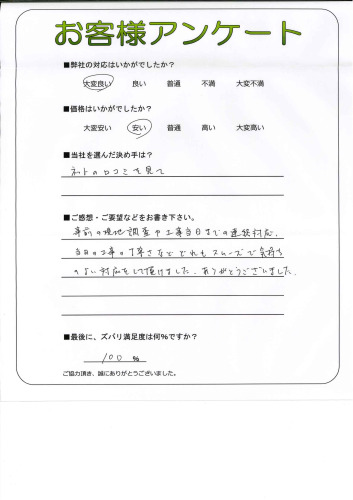 お客様アンケート
■弊社の対応はいかがでしたか？
大変良い 良い 普通 不満 大変不満
■価格はいかがでしたか？
大変安い 安い 普通 高い 大変高い
■当社を選んだ決め手は？
ネットの口コミを見て
■ご感想・ご要望などをお書き下さい。
事前の現地調査や工事当日までの連絡対応、
当日の工事の丁寧さなどどれもスムーズで気持ち
のよい対応をして頂けました。ありがとうございました。
■最後に、ズバリ満足度は何％ですか？
100 ％
ご協力頂き、誠にありがとうございました。